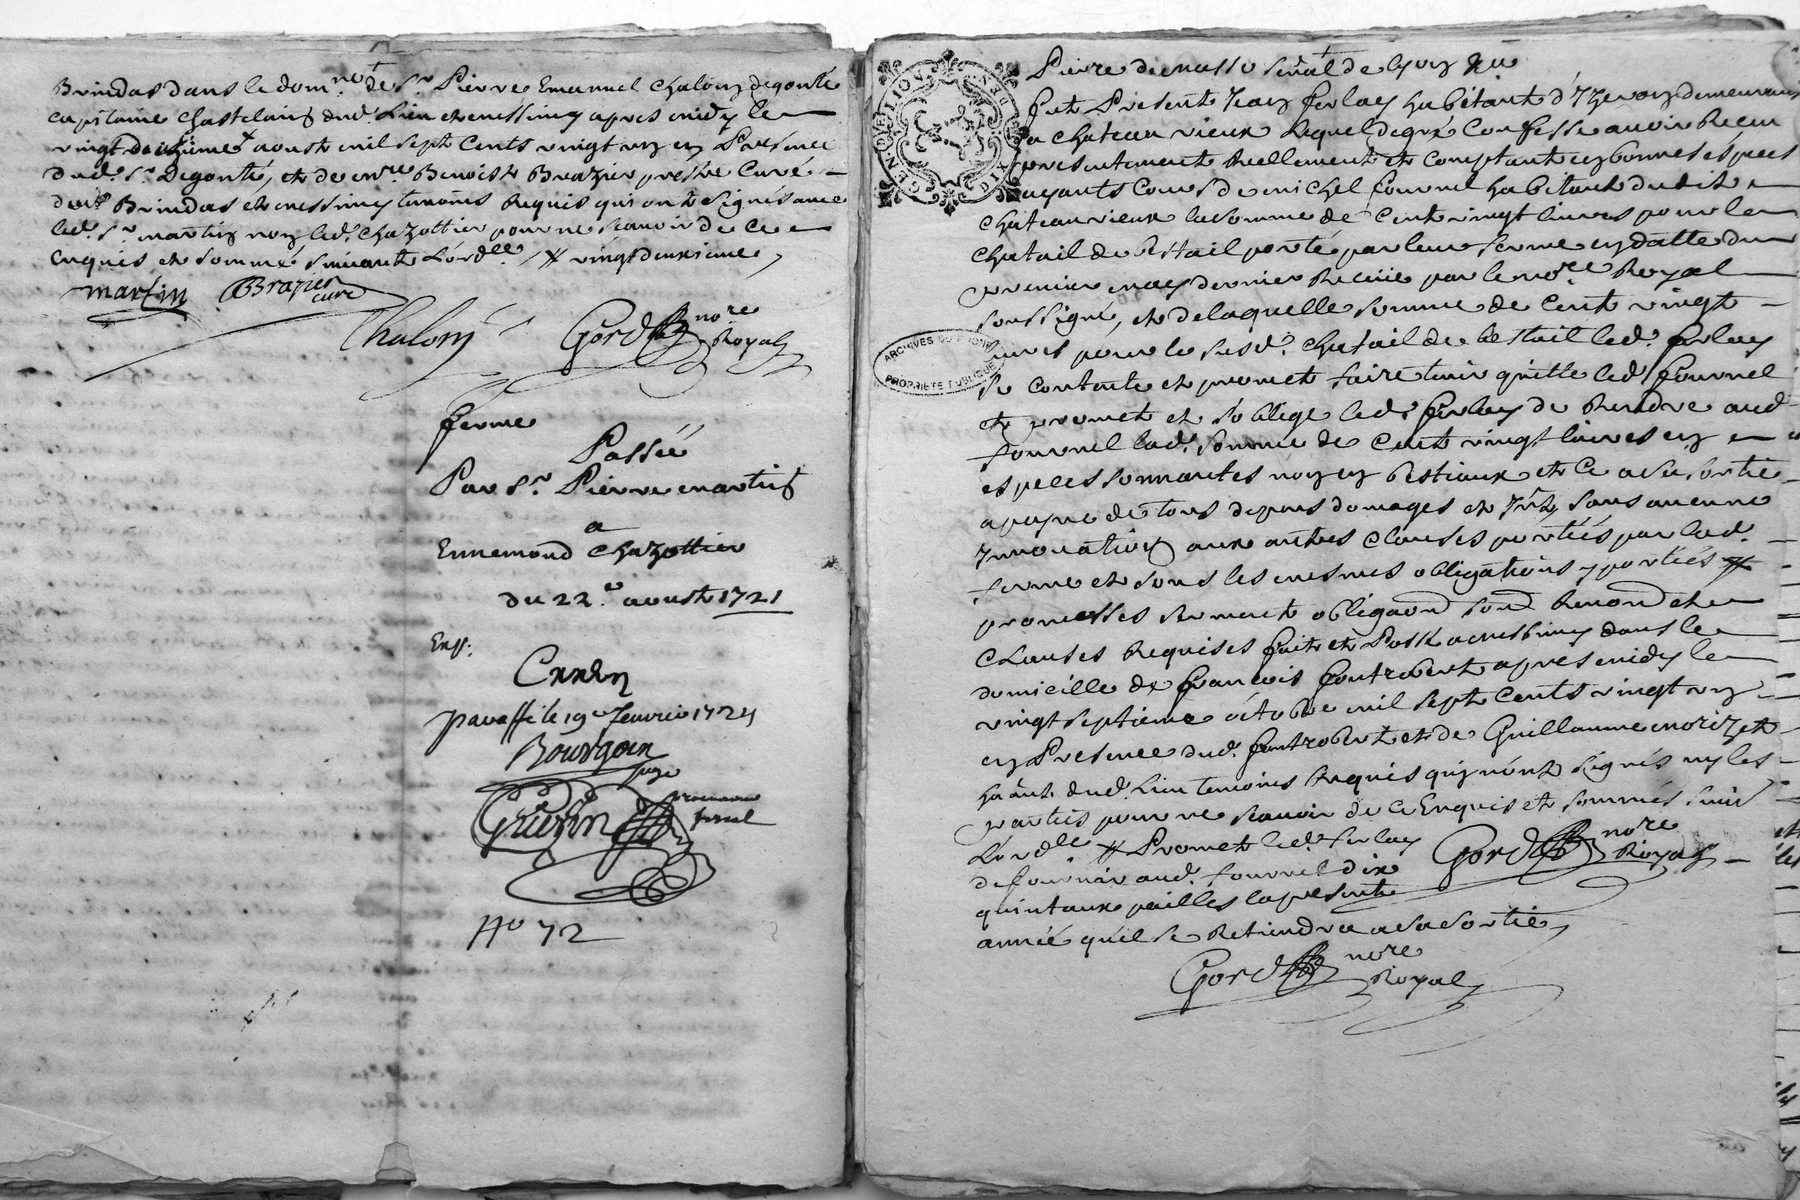 Brindas dans le dom.ne de Sr Pierre Emanuel Chalon degonté
capitaine Chastelain dud. Lieu et messimy apres midy le
vingt deuxieme aoust mil sept cents vingt un en Presence
dud. Sr Degonté, et de mre Benoist Brazier prestre Curé
dud. Brindas et messimy temoins Requis qui ont signés avec
led. Sr martin non led. Chazottier pour ne scavoir de ce
Enquis et sommé suivant L'ord.lle vingt deuxieme
martin BBrazier
curé
Chalon Gord nore
Royal
ferme
Passée
Par Sr Pierre martin
a
Ennemond Chazottier
du 22.e aoust 1721
paraffé le 19e fevrier 1724
Bourgoin
juge
procureur
No 72
GEN DE LION
ARCHIVES DU RHONE
PROPRIÉTÉ PUBLIQUE
Fut Present Jean ferlay habitant d'Yzeron demeurant
a chateau vieux Lequel de gré Confesse avoir Receu
presentement Reellement et comptant en bonnes especes
ayants Cours de michel fournel habitant dudit
chateauvieux la somme de Cent vingt livres pour le
chatail de bestail porté par leur ferme en datte du
premier may dernier Receüe par le nore Royal
soussigné, et de laquelle somme de Cent vingt
livres pour le susd. chatail de bestail led. ferlay
se contente et promet faire tenir quitte led. fournel
et promet et s'oblige led. ferlay de Rendre aud.
fournel lad. somme de Cent vingt livres en
especes sonnantes non en bestiaux et ce a sa sortie
a payne de tous depens domages et sans aucune
Innovation aux autres Clauses portées par lad.
ferme et sous les mesmes obligations y portées
promesses serment obligaond soud Renond et
Clauses Requises fait et Passé a messimy dans le
domicille de françois fontrobert apres midy le
vingt septieme octobre mil sept cents vingt un
en Presence dud. fontrobert et de Guillaume
hãnt. dud. Lieu temoins Requis qui n'ont signés ny les
parties pour ne scavoir de ce Enquis et sommés suiv
L'ord.lle Promet led. ferlay Gord nore
de fournir aud. fournel dix Royal
quintaux pailles la presente
année qu'il se Retiendra a sa sortie
Gord nore
Royal